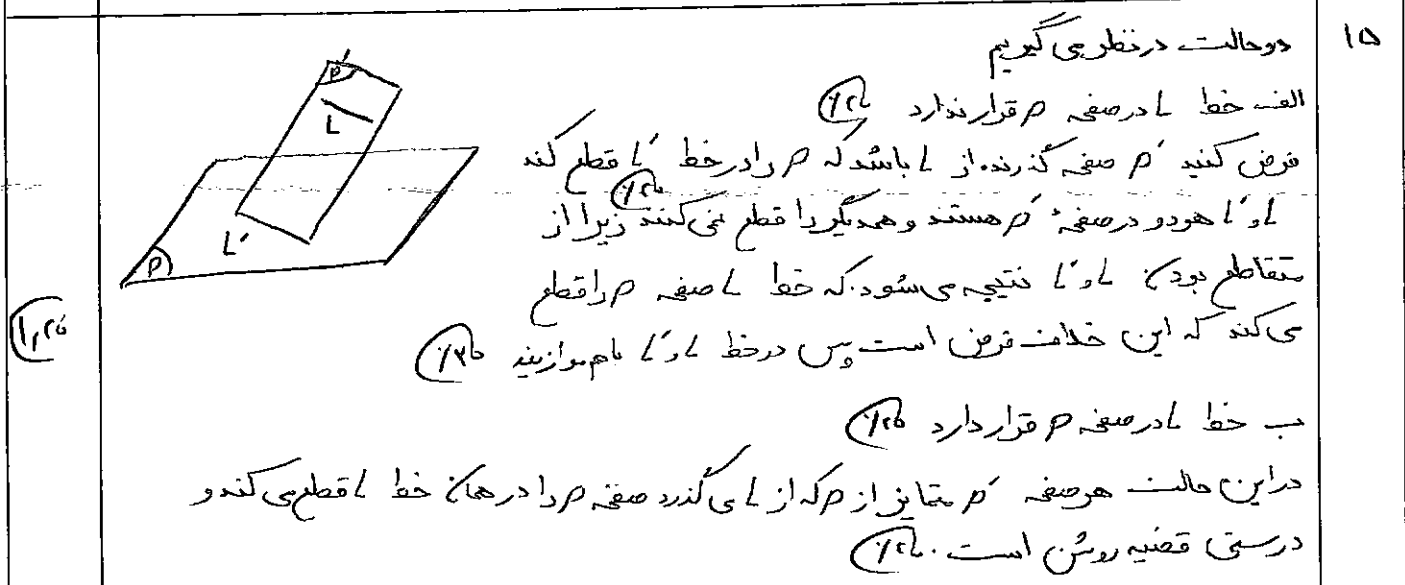 ۱۵
دو حالت در نظر می گیریم
الف خط L در صفحه P قرار ندارد ۰/۲۵
فرض کنید P′ صفحه گذرنده از L باشد که P را در خط L′ قطع کند
۰/۲۵
L و L′ هر دو در صفحهٔ P′ هستند و همدیگر را قطع نمی کنند زیرا از
متقاطع بودن L و L′ نتیجه می شود که خط L صفحه P را قطع
می کند که این خلاف فرض است پس در خط L و L′ با هم موازیند ۰/۲۵
ب خط L در صفحه P قرار دارد ۰/۲۵
در این حالت هر صفحه P′ متمایز از P که از L می گذرد صفحه P را در همان خط L قطع می کند و
درستی قضیه روشن است. ۰/۲۵
۱,۲۵
P′
L
L′
P